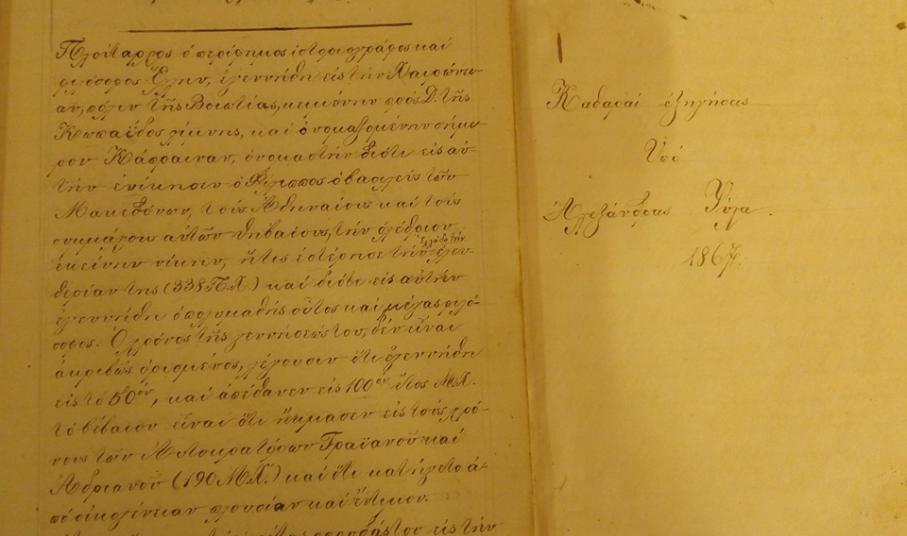 Πλούταρχος ὁ περίφημος ἱστοριογράφος καὶ
φιλόσοφος Ἕλλην, ἐγεννήθη εἰς τὴν Χαιρώνει-
αν, πόλιν τῆς Βοιωτίας, κειμένην πρὸς Δ. τῆς
Κωπαΐδος λίμνης, καὶ ὀνομαζομένην σήμε-
ρον Κάπραιναν, ὀνομαστὴν διότι εἰς αὐ-
τὴν ἐνίκησεν ὁ Φίλιππος ὁ βασιλεὺς τῶν
Μακεδόνων, τοὺς Ἀθηναίους καὶ τοὺς
συμμάχους αὐτῶν Θηβαίους, τὴν ὀλέθριον
ἐκείνην νίκην, ἥτις ἐστέρησε τὴν Ἑλλάδα τὴν ἐλευ-
θερίαν της (338 Π.Χ.) καὶ διότι εἰς αὐτὴν
ἐγεννήθη ὁ πολυμαθὴς οὗτος καὶ μέγας φιλό-
σοφος. Ὁ χρόνος τῆς γεννήσεώς του, δὲν εἶναι
ἀκριβῶς ὁρισμένος, λέγουσιν ὅτι ἐγεννήθη
εἰς τὸ 50ον, καὶ ἀπέθανεν εἰς 100ον ἔτος Μ.Χ.
τὸ βέβαιον εἶναι ὅτι ἤκμασεν εἰς τοὺς χρό-
νους τῶν Αὐτοκρατόρων Τραϊανοῦ καὶ
Ἀδριανοῦ (190 Μ.Χ.) καὶ ὅτι κατήγετο ἀ-
πὸ οἰκογένειαν πλουσίαν καὶ ἔντιμον.
εἰς τὴν
Καθαραὶ ἐξηγήσεις
Ὑπὸ
Ἀλεξάνδρας
1867.